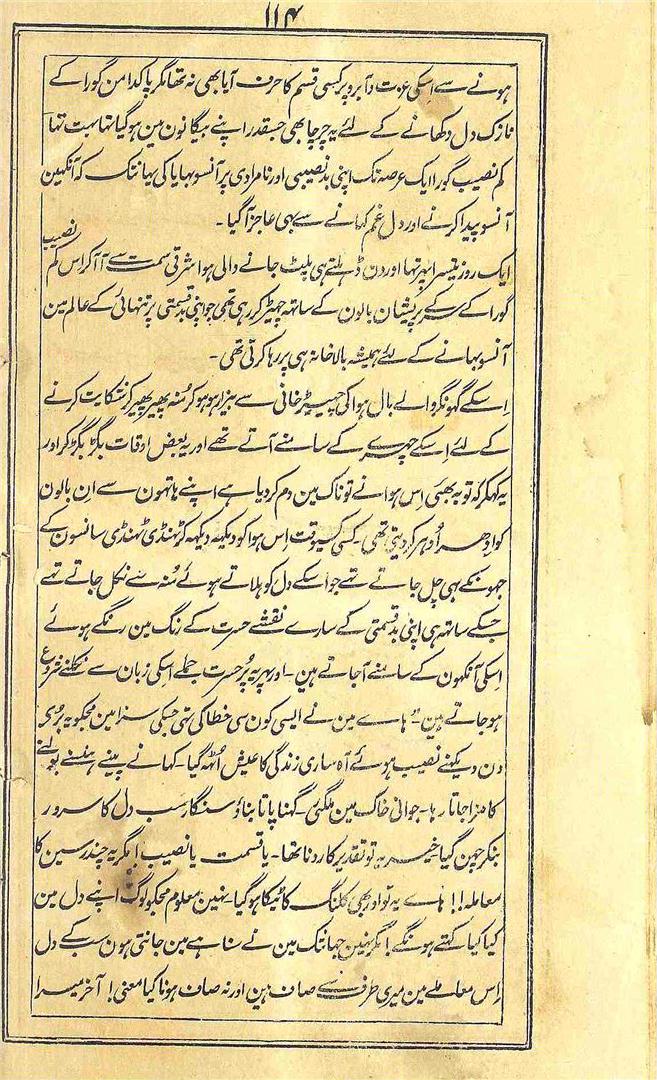 ۱۱۴
ہونے سے اسکی عزت و آبرو پر کسی قسم کا حرف آیا بھی نہ تھا مگر پاکدامن گورا کے
نازک دل دکھانے کے لئے یہ چرچا بھی جسقدر اپنے بیگانون مین ہو گیا تہا بہت تہا
کم نصیب گورا ایک عرصہ تک اپنی بد نصیبی اور نامرادی پر آنسو بہایا کی یہانتک کہ آنکھین
آنسو پیدا کرنے اور دل غم کہانے سے بہی عاجز آ گیا ۔
ایک روز تیسرا پہر تہا اور دن ڈہلتے ہی پلٹ جانے والی ہوا شرقی سمت سے آ آ کر اس کم نصیب
گورا کے سر کے پریشان بالون کے ساتہ چھیڑ کر رہی تھی جو اپنی بد قسمتی پر تنہائی کے عالم مین
آنسو بہانے کے لئے ہمیشہ بالاخانہ ہی پر رہا کرتی تھی ۔
اسکے گہونگر والے بال ہوا کی چھیڑ خانی سے بیزار ہو ہو کر منہ پھیر پھیر کر شکایت کرنے
کے لئے اسکے چہرے کے سامنے آتے تھے اور یہ بعض اوقات بگڑ بگڑ کر اور
یہ کہکر کہ توبہ بھئی اس ہوا نے تو ناک مین دم کر دیا ہے اپنے ہاتھون سے ان بالون
کو ادھر اُدھر کر دیتی تھی ۔ کسی کسیوقت اس ہوا کو دیکہہ دیکہہ کر ٹہنڈی ٹہنڈی سانسون کے
جہونکے بہی چل جاتے تھے جو اسکے دل کو ہلاتے ہوئے مُنہ سے نکل جاتے تھے
جسکے ساتھ ہی اپنی بد قسمتی کے سارے نقشے حسرت کے رنگ مین رنگے ہوئے
اسکی آنکھون کے سامنے آ جاتے ہین ۔ اور پہر یہ پُر حسرت جملے اسکی زبان سے نکلنے شروع
ہو جاتے ہین ۔ "ہاے مین نے ایسی کون سی خطا کی تہی جسکی سزا مین مجکو یہ بُرے
دن دیکھنے نصیب ہوئے آہ ساری زندگی کا عیش اُٹھ گیا ۔ کہانے پینے ہنسنے بولنے
کا مزا جاتا رہا ۔ جوانی خاک مین ملگئی ۔ گہنا پاتا بناؤ سنگار سب دل کا سرور
بنکر چھن گیا ۔ خیر یہ تو تقدیر کا رونا تھا ۔ یا قسمت یا نصیب ! مگر یہ چندر سین کا
معاملہ !! ہاے یہ تو اور بھی کلنک کا ٹیکا ہو گیا ۔ نہین معلوم مجکو لوگ اپنے دل مین
کیا کیا کہتے ہونگے ! مگر نہین جہانتک مین نے سنا ہے مین جانتی ہون سب کے دل
اِس معاملے مین میری طرف سے صاف ہین اور نہ صاف ہونا کیا معنی ! آخر میرا